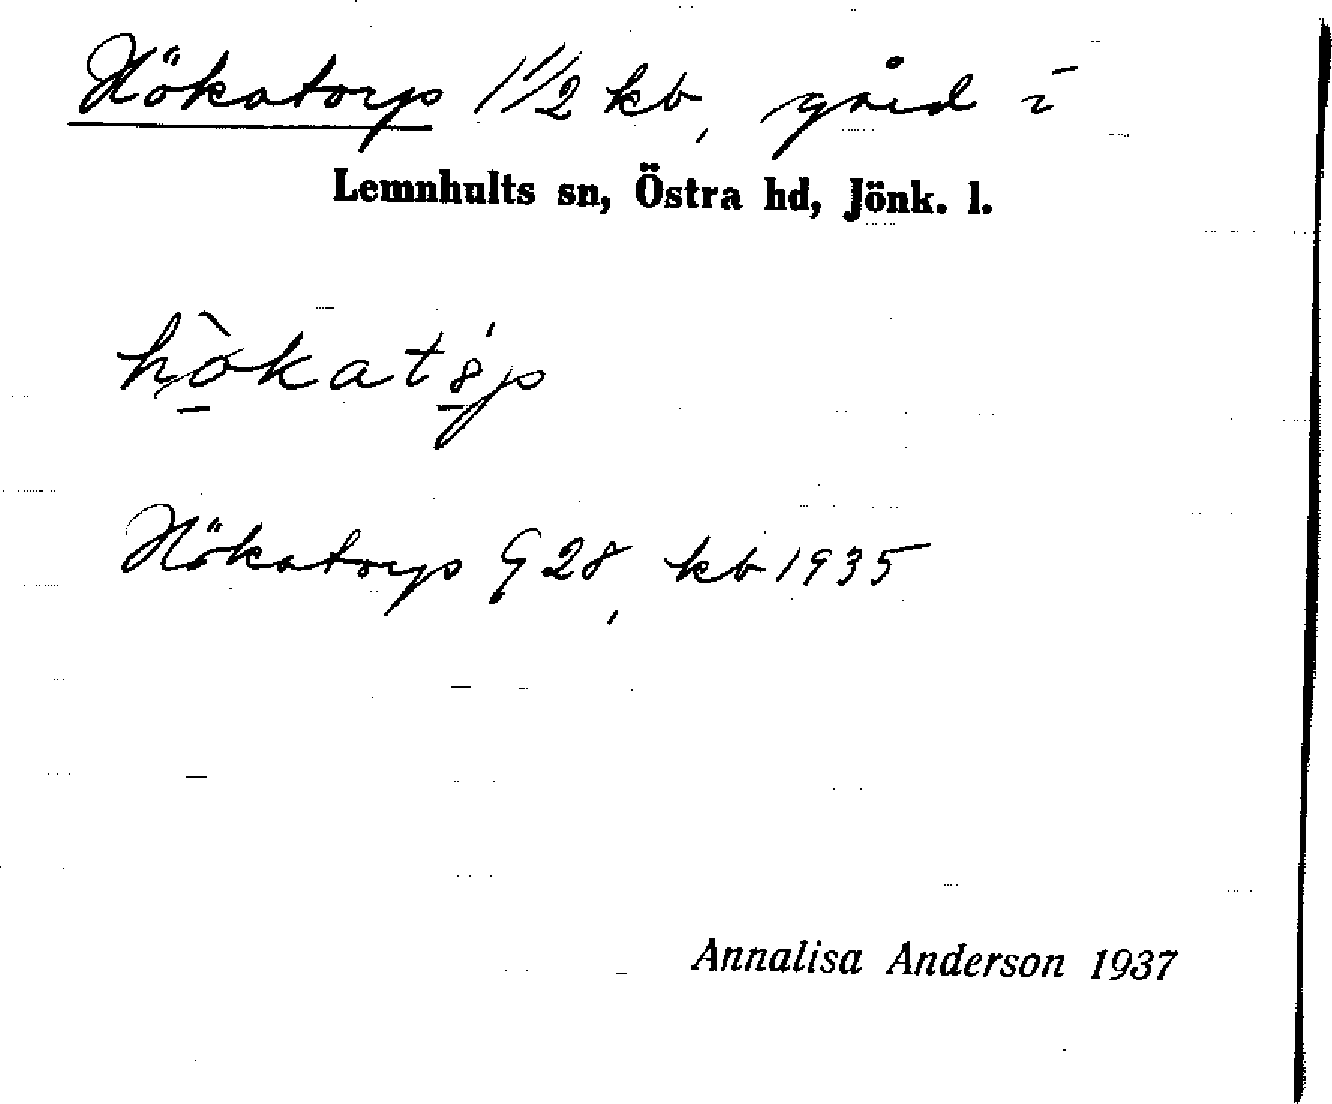 Hökatorp 1 1/2 kb, gård i
Lemnhults sn, Östra hd, Jönk. l.
hòkat
Hökatorp G 28, kb 1935
Annalisa Anderson 1937